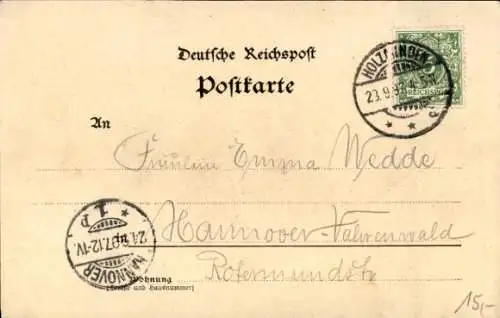 Deutsche Reichspost
Postkarte
HOLZMINDEN
23.9.97
REICHSPOST
An
Fräulein Emma Wedde
Hannover-Vahrenwald
Rotermundstr
HANNOVER
1. P
24.9.97.12-1V
Wohnung
(Straße und Hausnummer)
15,-